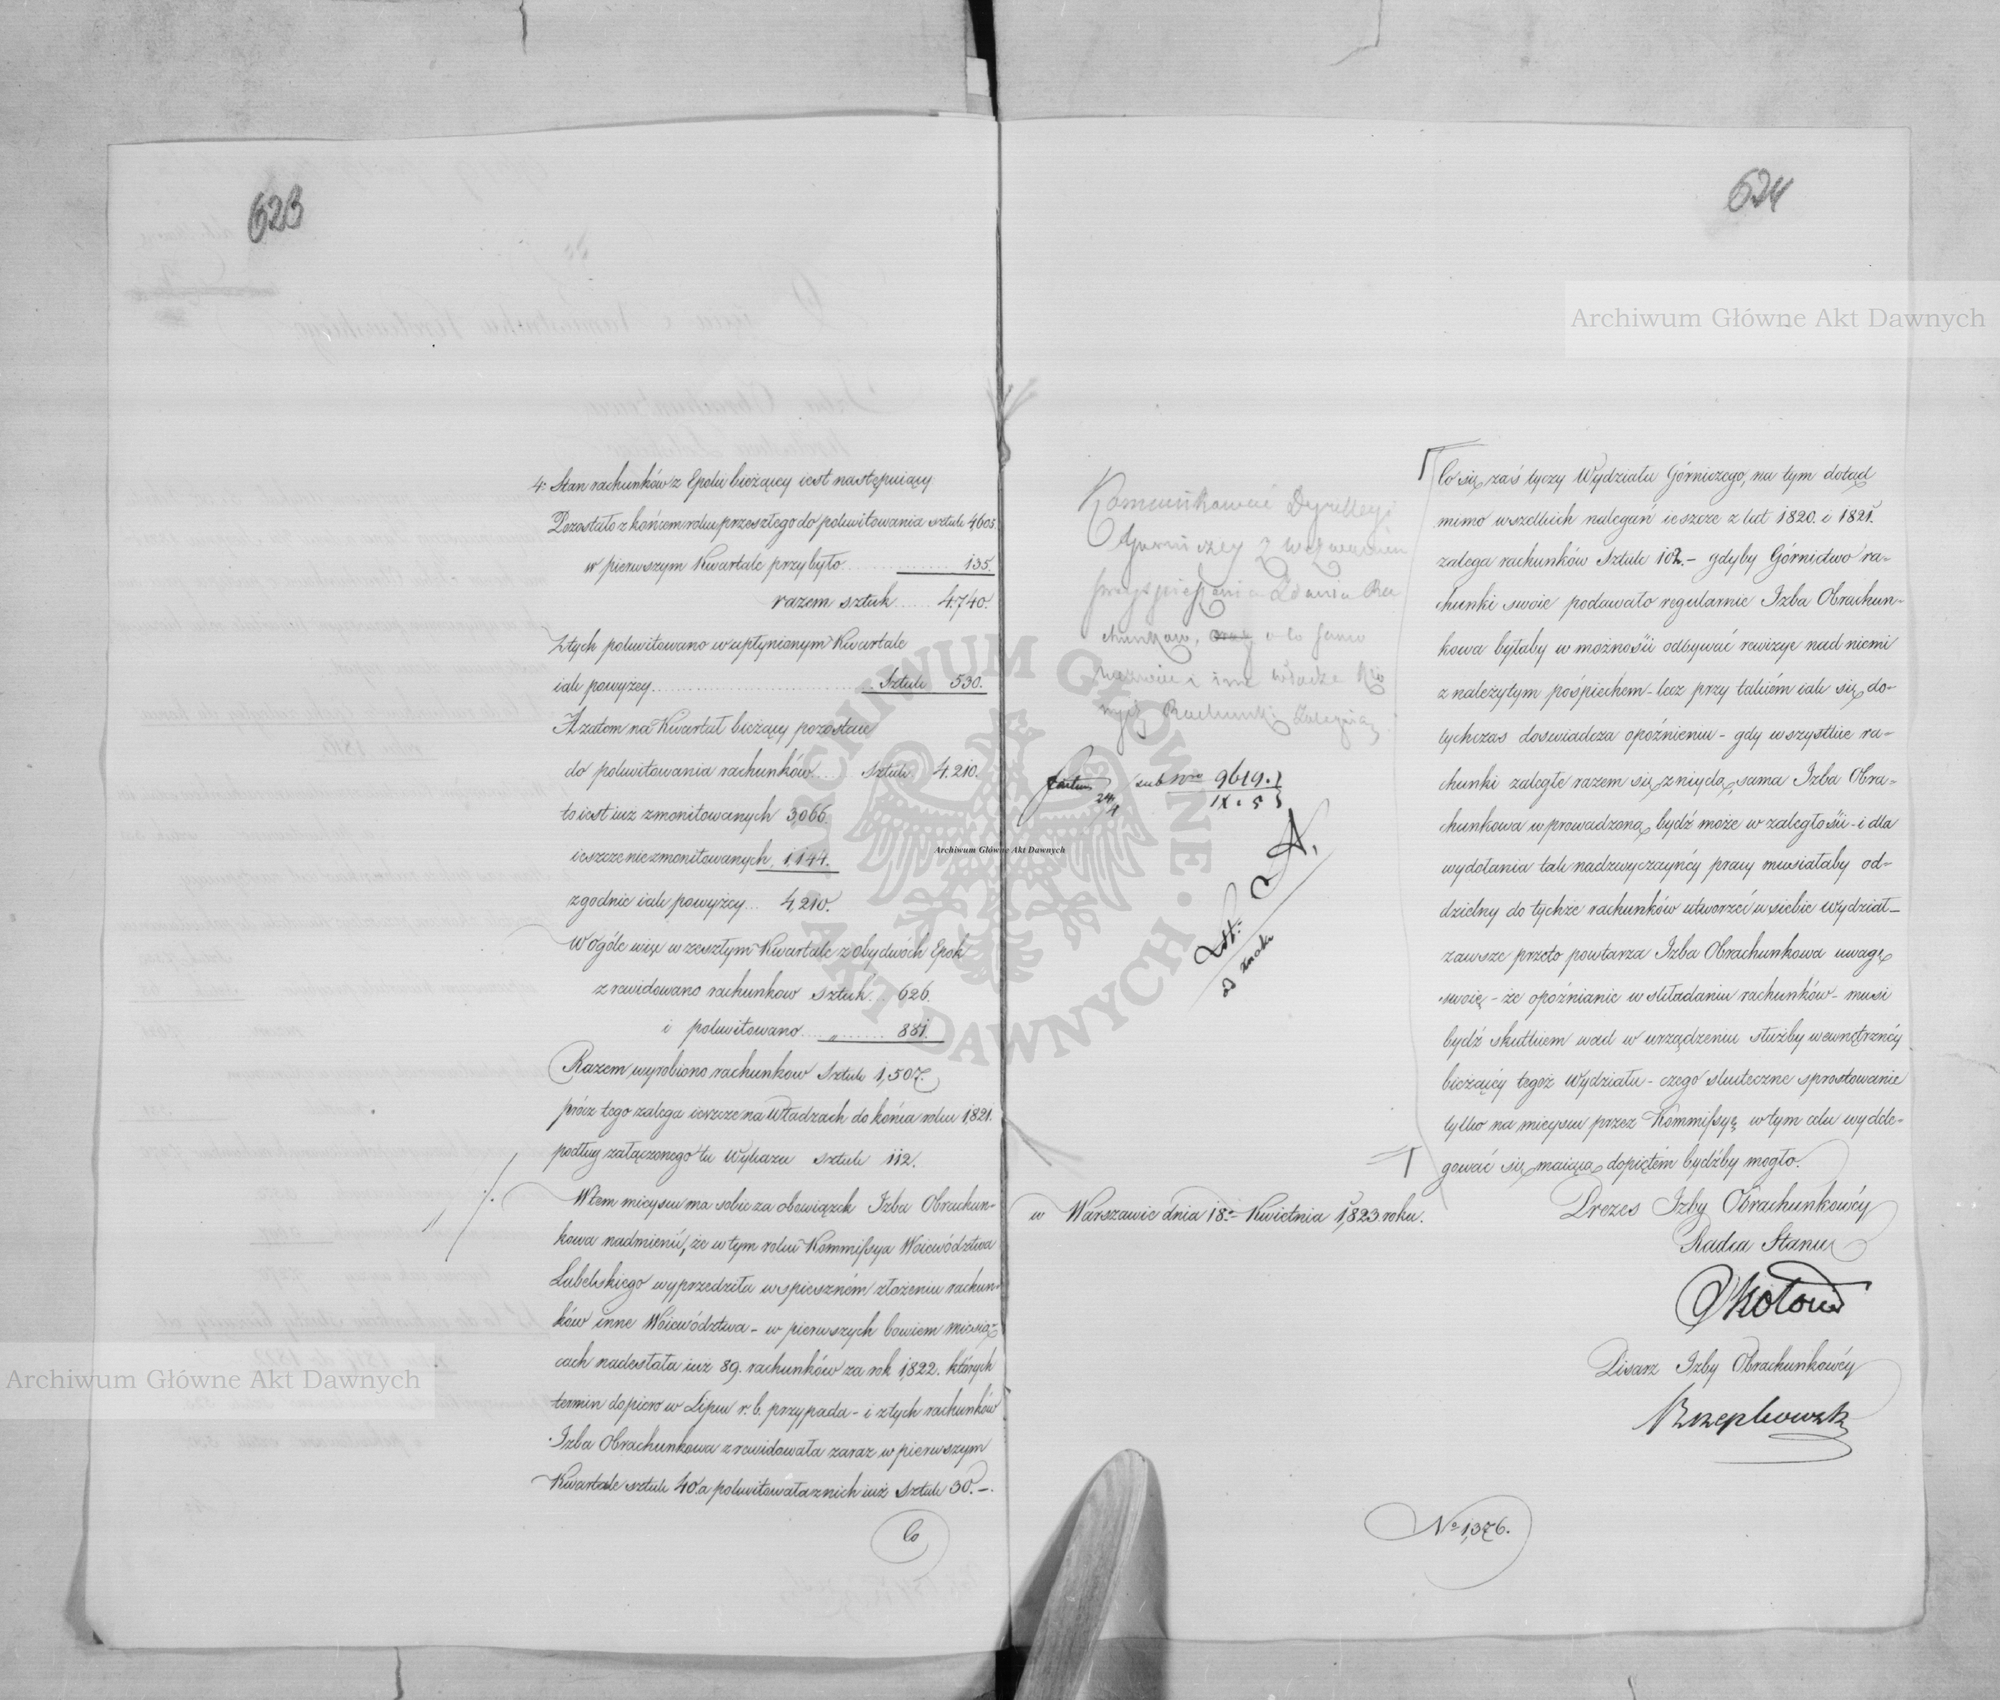 623
4. Stan rachunków z Epoki bieżącey iest następuiący
Pozostało z końcem roku przeszłego do pokwitowania sztuk 4605.
w pierwszym Kwartale przybyło . . . . . . . . . 135.
razem sztuk . . . . 4740.
Z tych pokwitowano w upłynionym Kwartale
iak powyżey . . . . . . . . . . Sztuk 530.
A zatom na Kwartał bieżący pozostaie
do pokwitowania rachunków . . . sztuk. 4.210.
to iest iuż zmonitowanych 3,066.
ieszcze niezmonitowanych, 1,144.
zgodnie iak powyżey . . . 4,210.
W ogóle więc w zeszłym Kwartale z obydwóch Epok
zrewidowano rachunkow sztuk . . 626.
i pokwitowano . . . „ . . . . . 881.
Razem wyrobiono rachunkow Sztuk 1,507.
prócz tego zalega ieszcze na Władzach do końca roku 1,821.
podług załączonego tu Wykazu sztuk 112.
W tem mieyscu ma sobie za obowiązek Izba Obrachun-
kowa nadmienić, że w tym roku Kommissya Woiewództwa
Lubelskiego wyprzedziła w spieszném złożeniu rachun-
ków inne Woiewództwa - w pierwszych bowiem miesią-
cach nadesłała iuż 89. rachunków za rok 1,822. których
termin dopiero w Lipcu r. b. przypada - i z tych rachunków
Izba Obrachunkowa zrewidowała zaraz w pierwszym
Kwartale sztuk 40. a pokwitowała z nich iuż Sztuk 30. -.
Co
624
Komunikować Dyrekcyi
Gorniczey z wezwaniem
przyspieszenia zdania Ra
chunkow, a to samo
inne władze
Rachunki zalegaią
sub Nro 9619.
IX. 5
24/4
w Warszawie dnia 18. Kwietnia 1,823 roku.
Co się zaś tyczy Wydziału Górniczego, na tym dotąd
mimo wszelkich nalegań ieszcze z lat 1820. i 1821.
zalega rachunków Sztuk 102. - gdyby Górnictwo ra-
chunki swoie podawało regularnie Izba Obrachun-
kowa byłaby w możności odbywać rewizye nad niemi
z należytym pośpiechem - lecz przy takiém iak się do-
tychczas doświadcza opóźnieniu - gdy wszystkie ra-
chunki zaległe razem się zniydą, sama Izba Obra-
chunkowa wprowadzoną bydź może w zaległości - i dla
wydołania tak nadzwyczaynéy pracy musiałaby od-
dzielny do tychże rachunków utworzéć w siebie Wydział -
zawsze przeto powtarza Izba Obrachunkowa uwagę
swoię - że opóźnianie w składaniu rachunków - musi
bydź skutkiem wad w urządzeniu służby wewnętrznéy
bieżącéy tegoż Wydziału - czego skuteczne sprostowanie
tylko na mieyscu przez Kommissyę w tym celu wydele-
gować się maiącą dopiętém bydźby mogło.
Prezes Izby Obrachunkowéy
Radca Stanu
Pisarz Izby Obrachunkowéy
No 1,376.
Archiwum Główne Akt Dawnych
Archiwum Główne Akt Dawnych
Archiwum Główne Akt Dawnych
ARCHIWUM GŁÓWNE · AKT DAWNYCH ·